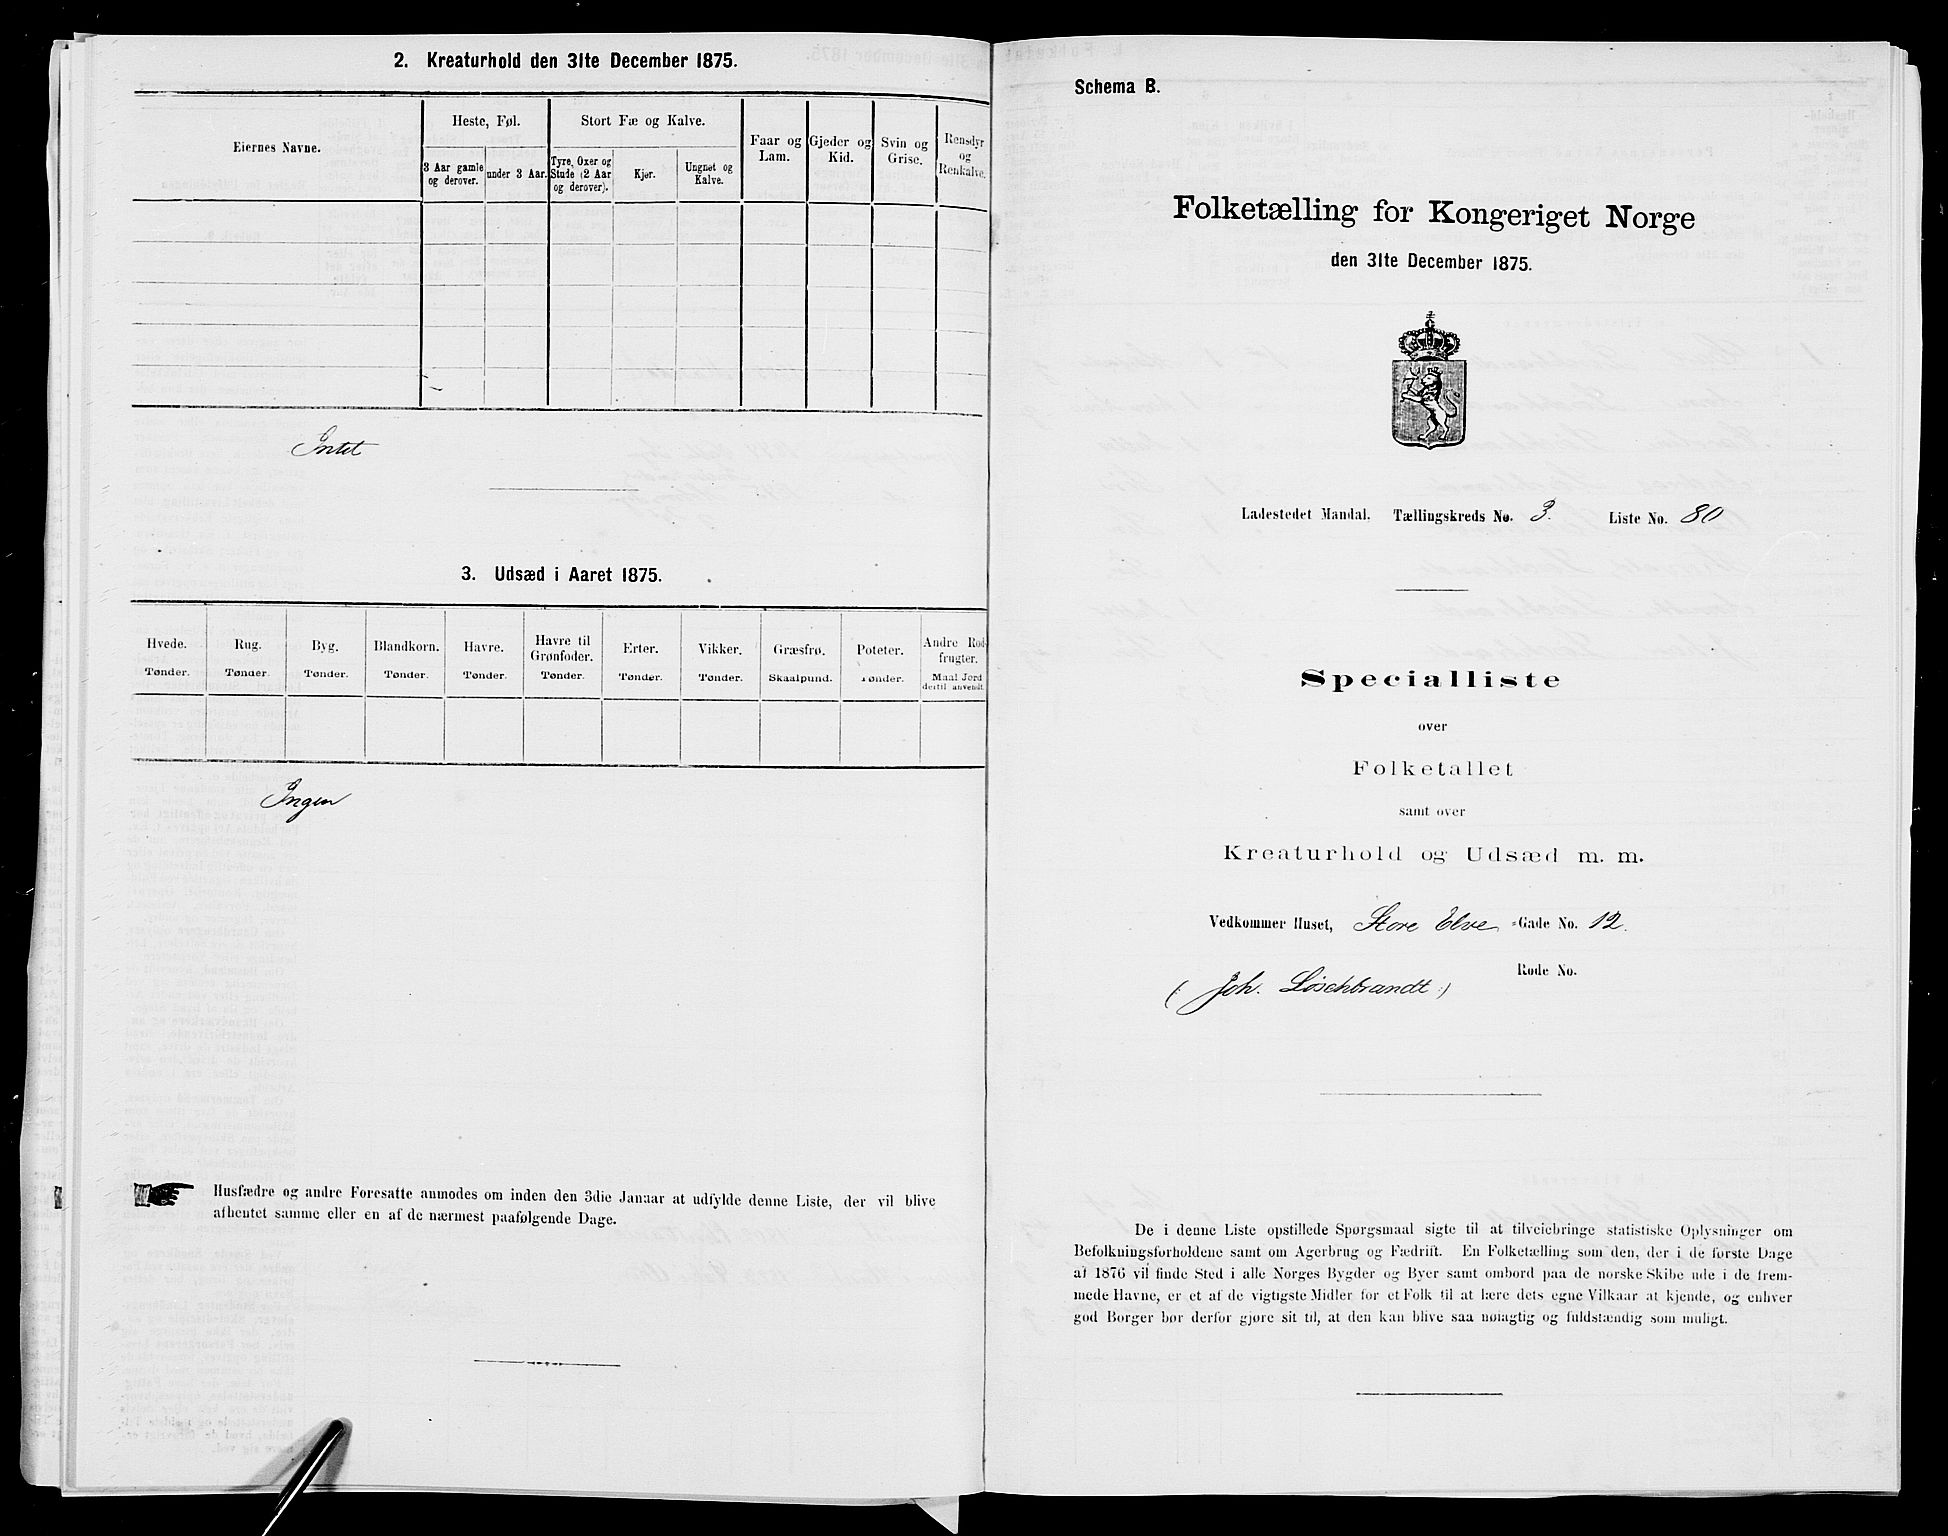 2. Kreaturhold den 31te December 1875.
Eiernes Navne.
Heste, Føl.
Stort Fæ og Kalve.
Faar og Lam.
Gjeder og Kid.
Svin og Grise.
Rensdyr og Renkalve.
3 Aar gamle og derover.
under 3 Aar.
Tyre, Oxer og Stude (2 Aar og derover).
Kjør.
Ungnet og Kalve.
Intet
3. Udsæd i Aaret 1875.
Hvede. Rug. Byg. Blandkorn. Havre. Havre til Grønfoder. Erter. Vikker. Græsfrø. Poteter. Andre Rodfrugter.
Tønder. Tønder. Tønder. Tønder. Tønder. Tønder. Tønder. Tønder. Skaalpund. Tønder. Maal Jord dertil anvendt.
Ingen
Husfædre og andre Foresatte anmodes om inden den 3die Januar at udfylde denne Liste, der vil blive
afhentet samme eller en af de nærmest paafølgende Dage.
Schema B.
Folketælling for Kongeriget Norge
den 31te December 1875.
Ladestedet Mandal. Tællingskreds No. 3. Liste No. 80
Specialliste
over
Folketallet
samt over
Kreaturhold og Udsæd m. m.
Vedkommer Huset, Store Elve-Gade No. 12.
Rode No.
(: Joh. Löschbrandt :)
De i denne Liste opstillede Spørgsmaal sigte til at tilveiebringe statistiske Oplysninger om
Befolkningsforholdene samt om Agerbrug og Fædrift. En Folketælling som den, der i de første Dage
af 1876 vil finde Sted i alle Norges Bygder og Byer samt ombord paa de norske Skibe ude i de frem-
mede Havne, er et af de vigtigste Midler for et Folk til at lære dets egne Vilkaar at kjende, og enhver
god Borger bør derfor gjøre sit til, at den kan blive saa nøiagtig og fuldstændig som muligt.